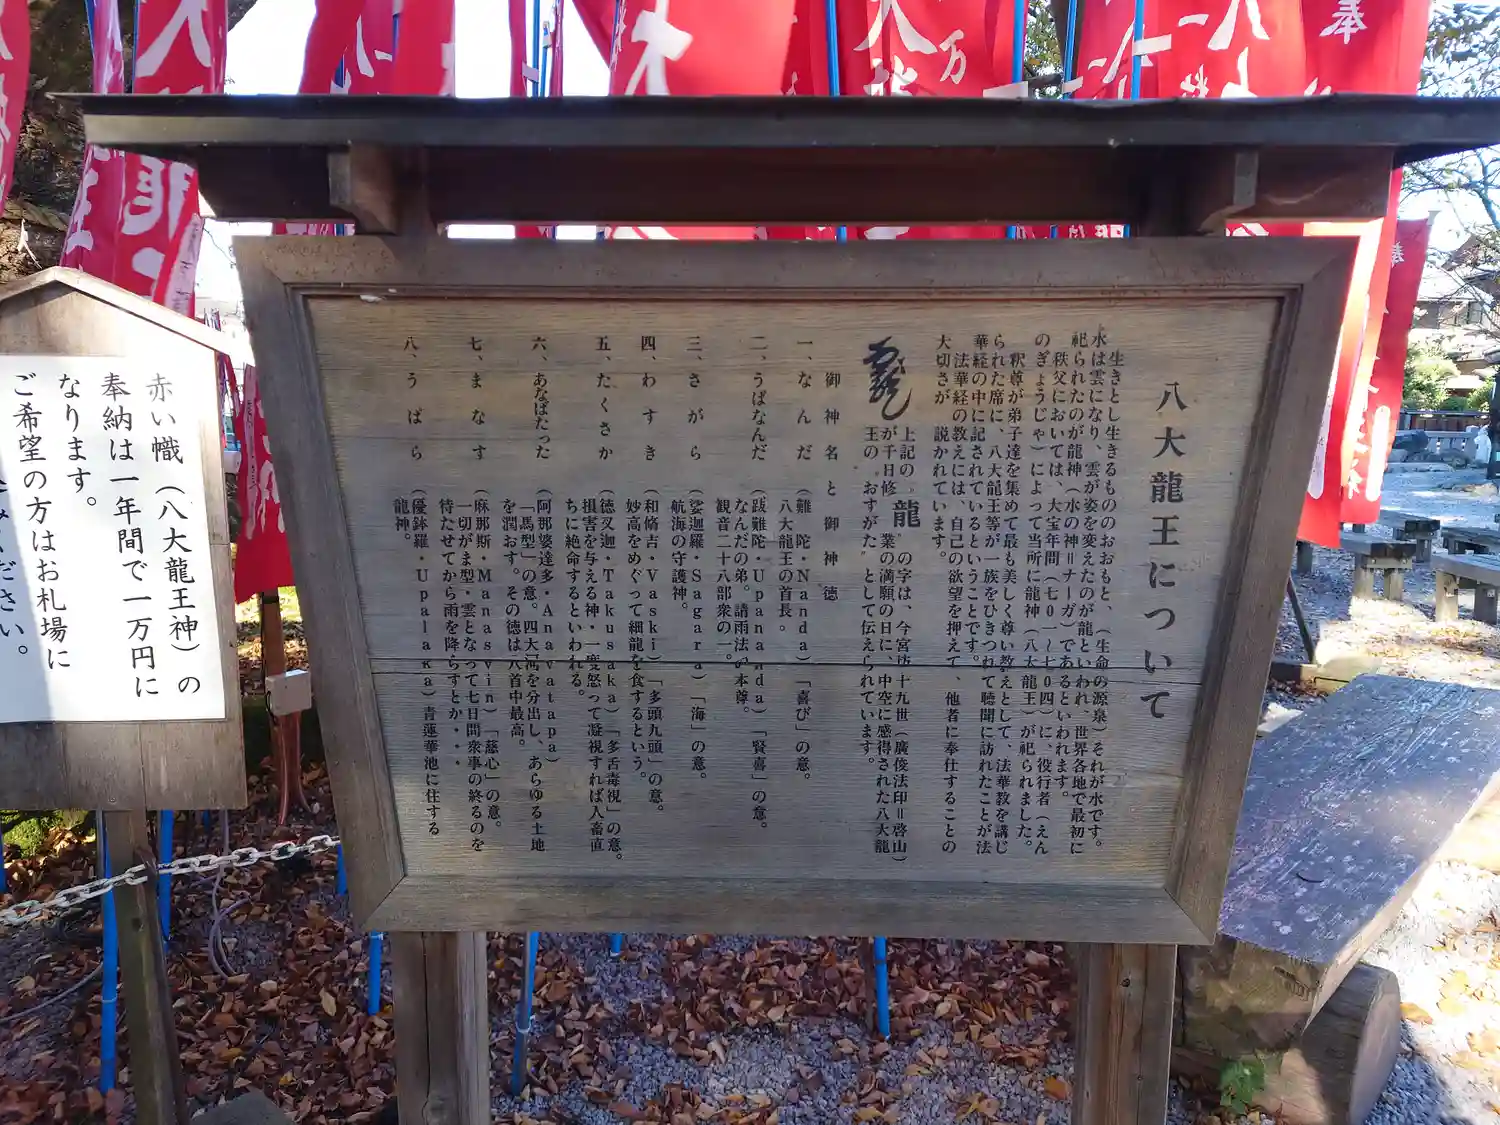 八大龍王について
生きとし生きるもののおおもと、（生命の源泉）それが水です。
水は雲になり、雲が姿を変えたのが龍といわれ、世界各地で最初に
祀られたのが龍神（水の神＝ナーガ）であるといわれます。
秩父においては、大宝年間（七〇一～七〇四）に、役行者（えん
のぎょうじゃ）によって当所に龍神（八大龍王）が祀られました。
釈尊が弟子達を集めて最も美しく尊い教えとして、法華教を講じ
られた席に、八大龍王等が一族をひきつれて聴聞に訪れたことが法
華経の中に記されているということです。
法華経の教えには、自己の欲望を押えて、他者に奉仕することの
大切さが 説かれています。
上記の〝龍〟の字は、今宮坊十九世（廣俊法印＝啓山）
が千日修 業の満願の日に、中空に感得された八大龍
王の〝おすがた〟として伝えられています。
御神名と御神徳
一、なんだ（難 陀・Nanda）「喜び」の意。
八大龍王の首長。
二、うばなんだ（跋難陀・Upananda）「賢喜」の意。
なんだの弟。請雨法の本尊。
観音二十八部衆の一。
三、さがら（娑迦羅・Sagara）「海」の意。
航海の守護神。
四、わすき（和脩吉・Vaski）「多頭九頭」の意。
妙高をめぐって細龍を食するという。
五、たくさか（徳叉迦・Takusaka）「多舌毒視」の意。
損害を与える神・一度怒って凝視すれば人畜直
ちに絶命するといわれる。
六、あなばたった（阿那婆達多・Anavatapa）
「馬型」の意。四大河を分出し、あらゆる土地
を潤おす。その徳は八首中最高。
七、まなす（麻那斯・Manasvin）「慈心」の意。
一切がま型・雲となって七日間衆事の終るのを
待たせてから雨を降らすとか・・・
八、うばら（優鉢羅・Upalaka）青蓮華池に住する
龍神。
赤い幟（八大龍王神）の
奉納は一年間で一万円に
なります。
ご希望の方はお札場に